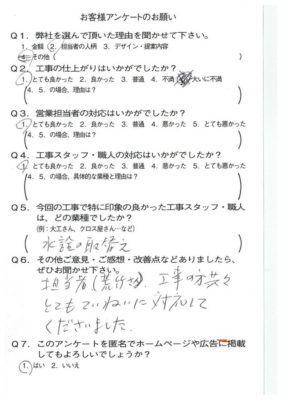 お客様アンケートのお願い
Q1. 弊社を選んで頂いた理由を聞かせて下さい。
1. 金額 2. 担当者の人柄 3. デザイン・提案内容
4. その他（ ）
Q2. 工事の仕上がりはいかがでしたか？
1. とても良かった 2. 良かった 3. 普通 4. 不満 大いに不満
（4. 5. の場合、理由は？ ）
Q3. 営業担当者の対応はいかがでしたか？
1. とても良かった 2. 良かった 3. 普通 4. 悪かった 5. とても悪かった
（4. 5. の場合、理由は？ ）
Q4. 工事スタッフ・職人の対応はいかがでしたか？
1. とても良かった 2. 良かった 3. 普通 4. 悪かった 5. とても悪かった
（4. 5. の場合、具体的な業種と理由は？ ）
Q5. 今回の工事で特に印象の良かった工事スタッフ・職人
は、どの業種でしたか？
（例：大工さん、クロス屋さん…など）
（水詮の取替え ）
Q6. その他ご意見・ご感想・改善点などありましたら、
ぜひお聞かせ下さい。
担当者 工事の方共々
とてもていねいに対応して
くださいました.
Q7. このアンケートを匿名でホームページや広告に掲載
してもよろしいでしょうか？
1. はい 2. いいえ